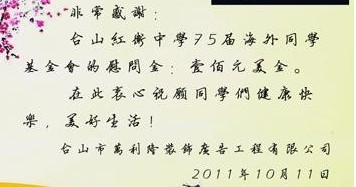 非常感謝：
台山紅衛中學75届海外同學
基金會的慰問金：壹佰元美金。
在此衷心祝願同學們健康快
樂，美好生活！
台山市萬利隆裝飾廣告工程有限公司
2011年10月11日